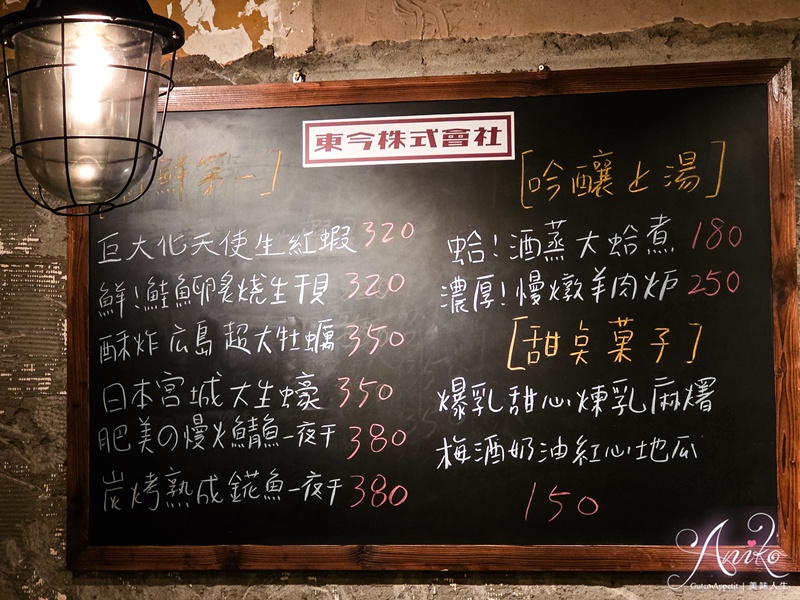 東今株式會社
鮮第一]
巨大化天使生紅蝦 320
鮮!鮭魚卵炙燒生干貝 320
酥炸広島超大牡蠣 350
日本宮城大生蠔 350
肥美の慢火鯖魚一夜干 380
炭烤熟成鯡魚一夜干 380
[吟釀と湯]
蛤!酒蒸大蛤煮 180
濃厚!慢燉羊肉炉 250
[甜点菓子]
爆乳甜心煉乳麻糬
梅酒奶油紅心地瓜
150
Aniko
GutenAppetit | 美味人生